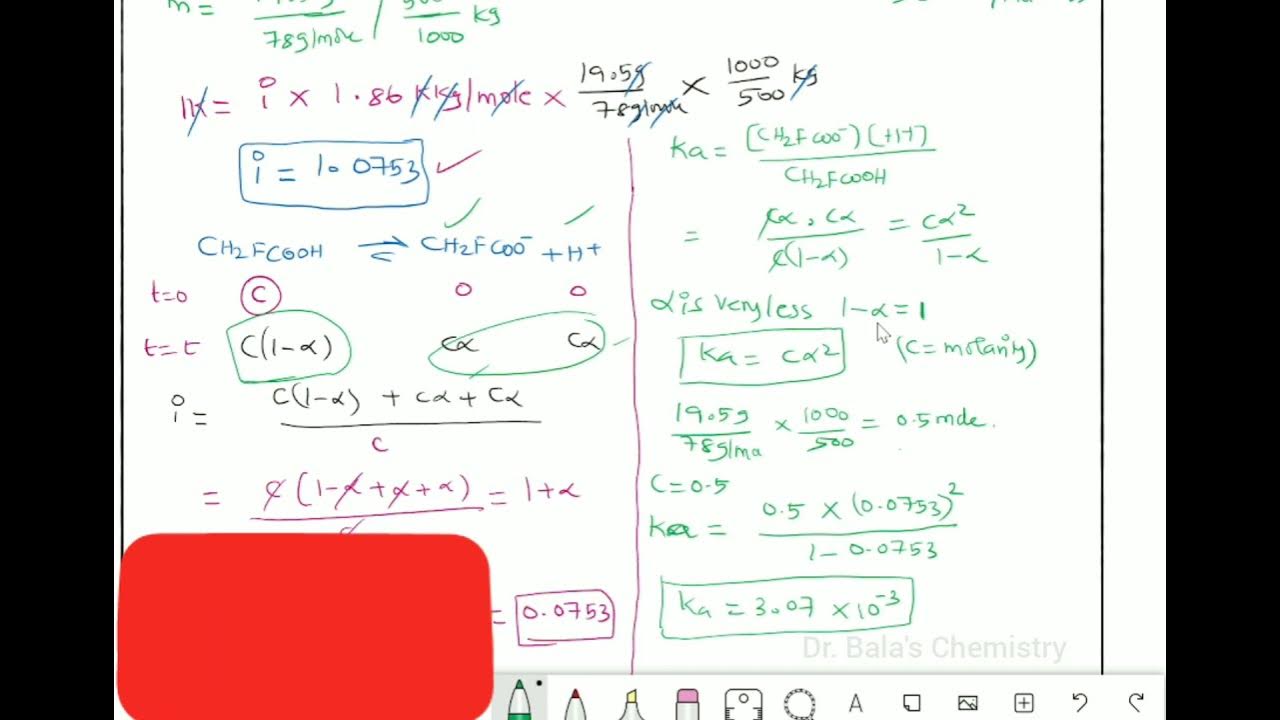 m =
78g/mole / 1000 kg
1K = i × 1.86 K Kg/mole × 19.5g / 78g/mole × 1000 / 500 kg
i = 1.0753
CH2FCOOH ⇌ CH2FCOO⁻ + H+
t=0 C 0 0
t=t C(1-α) Cα Cα
i = C(1-α) + Cα + Cα / C
= C(1-α+α+α) = 1+α
= 0.0753
Ka = (CH2FCOO⁻)(H+) / CH2FCOOH
= Cα, Cα / C(1-α) = Cα² / 1-α
α is very less 1-α = 1
Ka = Cα² (C = molarity)
19.5g / 78g/ma × 1000 / 500 = 0.5 mde.
C = 0.5
Ka = 0.5 × (0.0753)² / 1 - 0.0753
Ka = 3.07 × 10⁻³
Dr. Bala's Chemistry
A